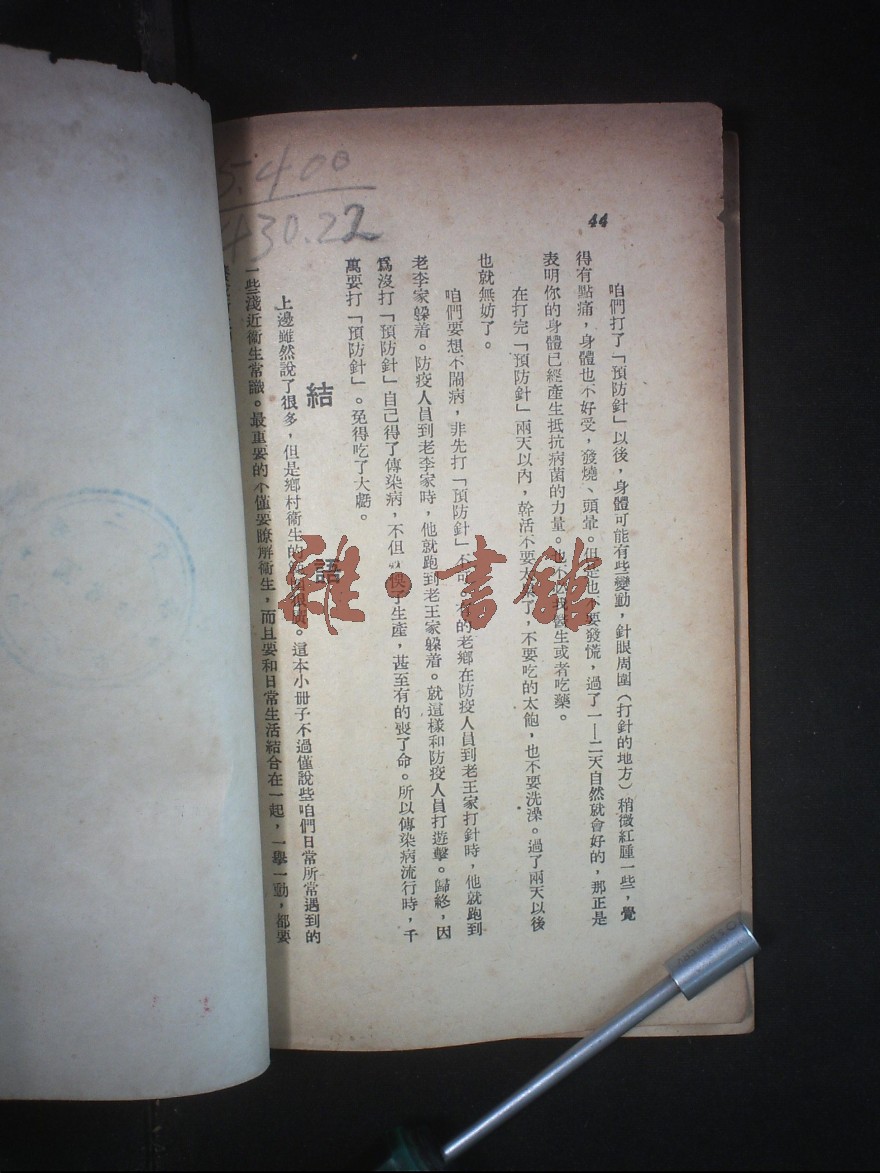 44
咱們打了「預防針」以後，身體可能有些變動，針眼周圍（打針的地方）稍微紅腫一些，覺
得有點痛，身體也不好受，發燒、頭暈。但是也不要發慌，過了一—二天自然就會好的，那正是
表明你的身體已經產生抵抗病菌的力量。也不必找醫生或者吃藥。
在打完「預防針」兩天以內，幹活不要太累了，不要吃的太飽，也不要洗澡。過了兩天以後
也就無妨了。
咱們要想不鬧病，非先打「預防針」不可。有的老鄉在防疫人員到老王家打針時，他就跑到
老李家躲着。防疫人員到老李家時，他就跑到老王家躲着。就這樣和防疫人員打遊擊。歸終，因
爲沒打「預防針」自己得了傳染病，不但誤了生產，甚至有的喪了命。所以傳染病流行時，千
萬要打「預防針」。免得吃了大虧。
結語
上邊雖然說了很多，但是鄉村衞生的範圍很廣。這本小册子不過僅說些咱們日常所常遇到的
一些淺近衞生常識。最重要的不僅要瞭解衞生，而且要和日常生活結合在一起，一舉一動，都要
5.400
430.22
雜·書館